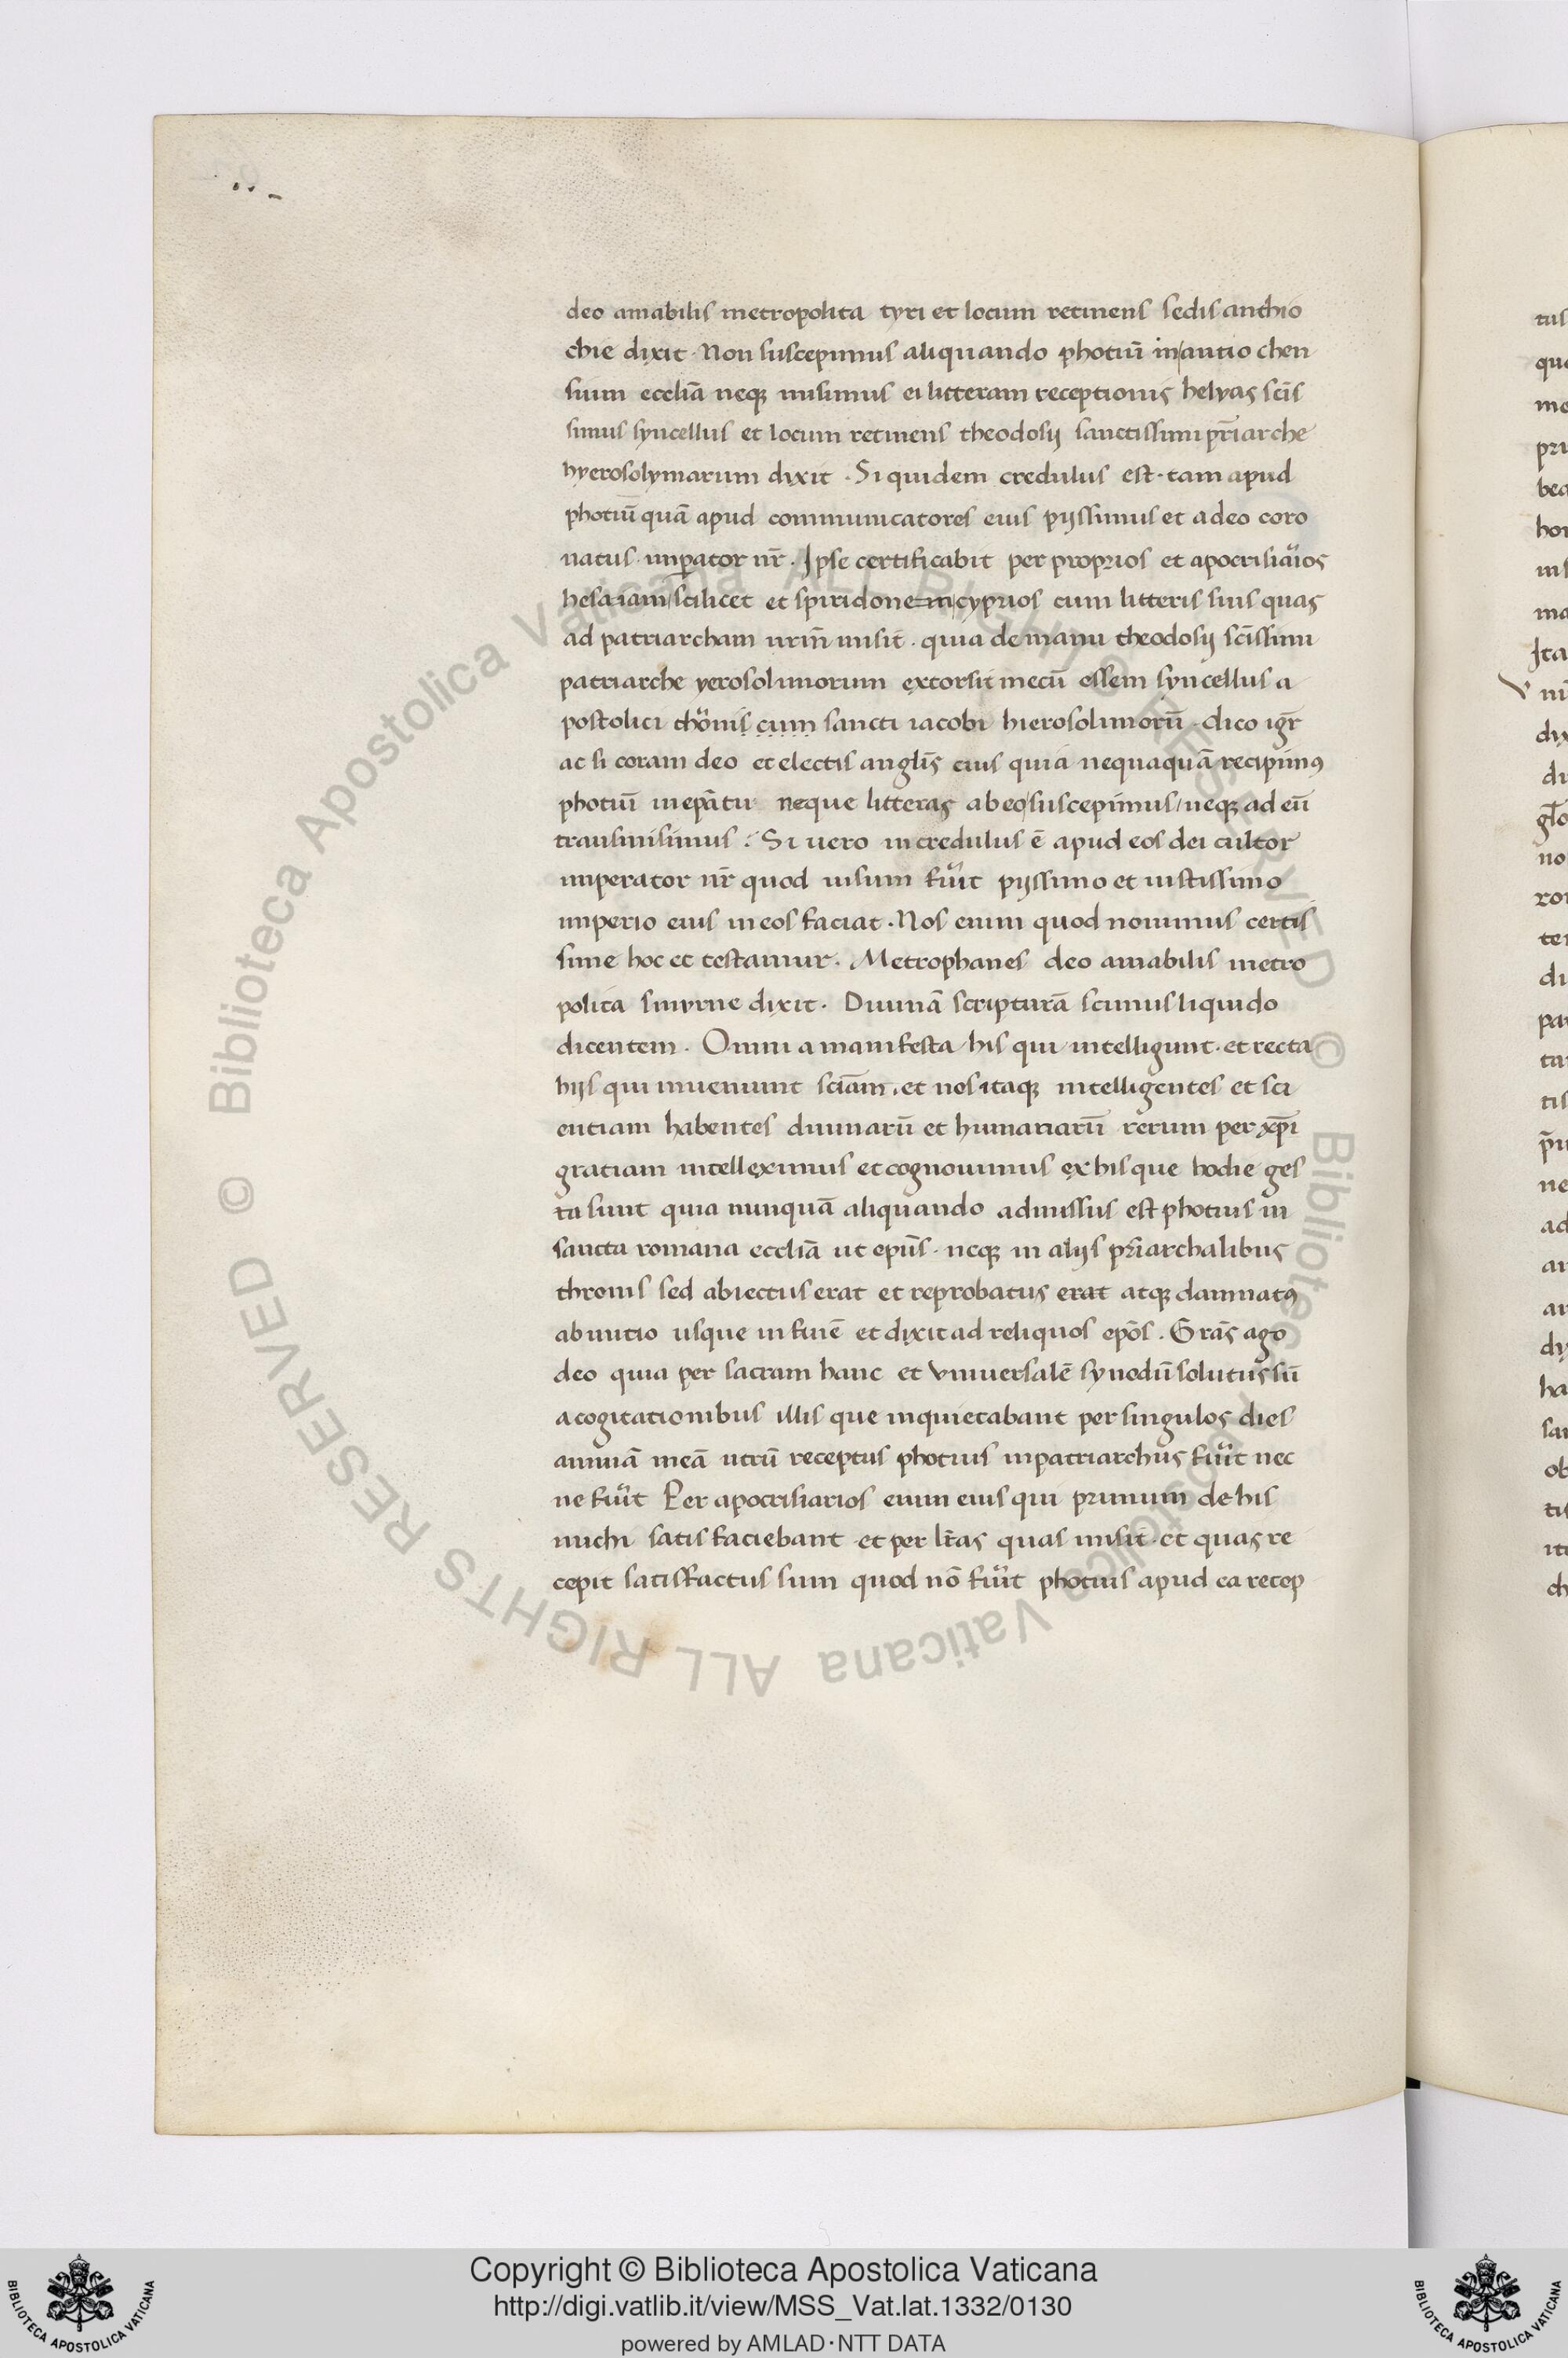 deo amabilis metropolita tyri et locum retinens sedis anthio
chie dixit · Non suscepimus aliquando photiū in antio chen
sium eccliā neqꝫ misimus ei litteram receptionis helyas scīs
simus syncellus et locum retinens theodosij sanctissimi pr̄iarche
hyerosolymarum dixit · Si quidem credulus est · tam apud
photiū quā apud communicatores eius pijssimus et adeo coro
natus imꝑator nr̄ · Ipse certificabit per proprios et apocrisiarios
hesaiam scilicet et spiridone in cyprios cum litteris suis quas
ad patriarcham urm̄ misit · quia de manu theodosij scīssimi
patriarche yerosolimorum extorsit mecū essem syncellus a
postolici thronis cum sancti iacobi hierosolimorū · dico igr̄
ac si coram deo et electis anglīs eius quia nequaquā recipimꝰ
photiū in epātu neque litteras ab eo suscepimus / neqꝫ ad eū
transmisimus : Si uero incredulus ē apud eos dei cultor
imperator nr̄ quod uisum fuerit pijssimo et iustissimo
imperio eius in eos faciat · Nos enim quod nouimus certis
sime hoc et testamur · Metrophanes deo amabilis metro
polita smyrne dixit · Diuinā scripturā scimus liquido
dicentem · Omni a manifesta his qui intelligunt · et recta
hijs qui inueniunt sciām · et nos itaqꝫ intelligentes et sci
entiam habentes diuinarū et humanarū rerum per xp̄i
gratiam intelleximus et cognouimus ex his que hodie ges
ta sunt quia nunquā aliquando admissus est photius in
sancta romana eccliā ut ep̄us · neqꝫ in alijs pr̄iarchalibus
thronis sed abiectus erat et reprobatus erat atqꝫ damnatꝰ
ab initio usque in finē et dixit ad reliquos epōs . Grās ago
deo quia per sacram hanc et vniuersalē synodū solutus sū
a cogitationibus illis que inquietabant per singulos dies
animā meā utrū receptus photius in patriarchus fuerit nec
ne fuerit Per apocrisiarios enim eius qui primum de his
michi satis faciebant et per lr̄as quas misit · et quas re
cepit satisfactus sum quod nō fuerit photius apud ea recep
Copyright © Biblioteca Apostolica Vaticana
http://digi.vatlib.it/view/MSS_Vat.lat.1332/0130
powered by AMLAD·NTT DATA